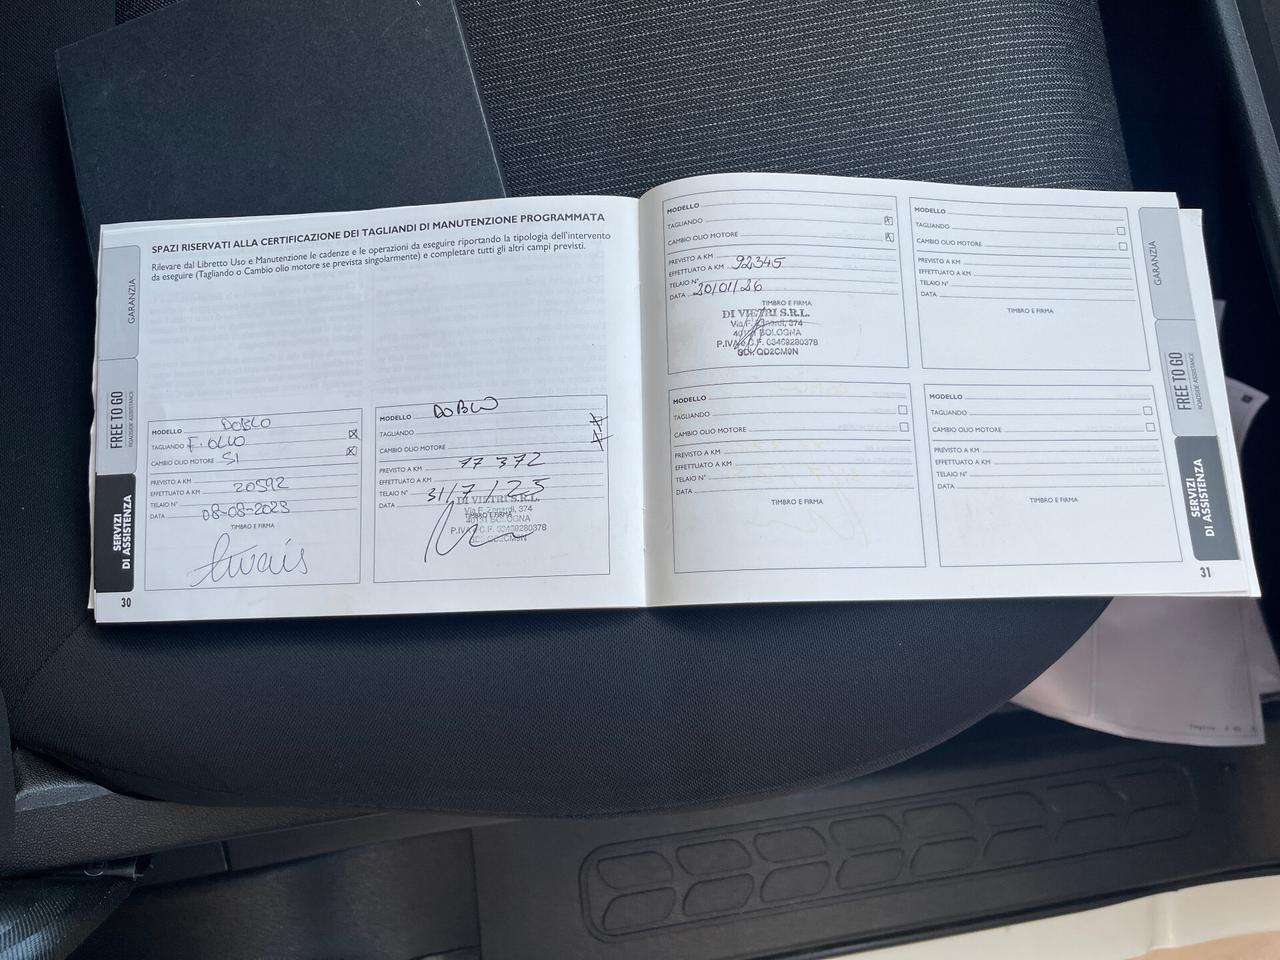 SPAZI RISERVATI ALLA CERTIFICAZIONE DEI TAGLIANDI DI MANUTENZIONE PROGRAMMATA
Rilevare dal Libretto Uso e Manutenzione le cadenze e le operazioni da eseguire riportando la tipologia dell'intervento
da eseguire (Tagliando o Cambio olio motore se prevista singolarmente) e completare tutti gli altri campi previsti.
GARANZIA
FREE TO GO
ROADSIDE ASSISTANCE
SERVIZI
DI ASSISTENZA
MODELLO DOBLO
TAGLIANDO F. OLIO
CAMBIO OLIO MOTORE SI
PREVISTO A KM
EFFETTUATO A KM 20592
TELAIO N°
DATA 08-08-2023
TIMBRO E FIRMA
30
MODELLO DOBLO
TAGLIANDO
CAMBIO OLIO MOTORE
PREVISTO A KM 77 372
EFFETTUATO A KM
TELAIO N° 31/7/25
DATA
DI VIETRI S.R.L.
Via F. Zanardi, 374
TIMBRO E FIRMA
40131 BOLOGNA
P.IVA e C.F. 03469280378
SDI: QD2CM9N
MODELLO
TAGLIANDO
CAMBIO OLIO MOTORE
PREVISTO A KM
EFFETTUATO A KM 92345
TELAIO N°
DATA 20/01/26
TIMBRO E FIRMA
DI VIETRI S.R.L.
Via F. Zanardi, 374
40131 BOLOGNA
P.IVA e C.F. 03469280378
SDI: QD2CM9N
MODELLO
TAGLIANDO
CAMBIO OLIO MOTORE
PREVISTO A KM
EFFETTUATO A KM
TELAIO N°
DATA
TIMBRO E FIRMA
MODELLO
TAGLIANDO
CAMBIO OLIO MOTORE
PREVISTO A KM
EFFETTUATO A KM
TELAIO N°
DATA
TIMBRO E FIRMA
MODELLO
TAGLIANDO
CAMBIO OLIO MOTORE
PREVISTO A KM
EFFETTUATO A KM
TELAIO N°
DATA
TIMBRO E FIRMA
GARANZIA
FREE TO GO
ROADSIDE ASSISTANCE
SERVIZI
DI ASSISTENZA
31